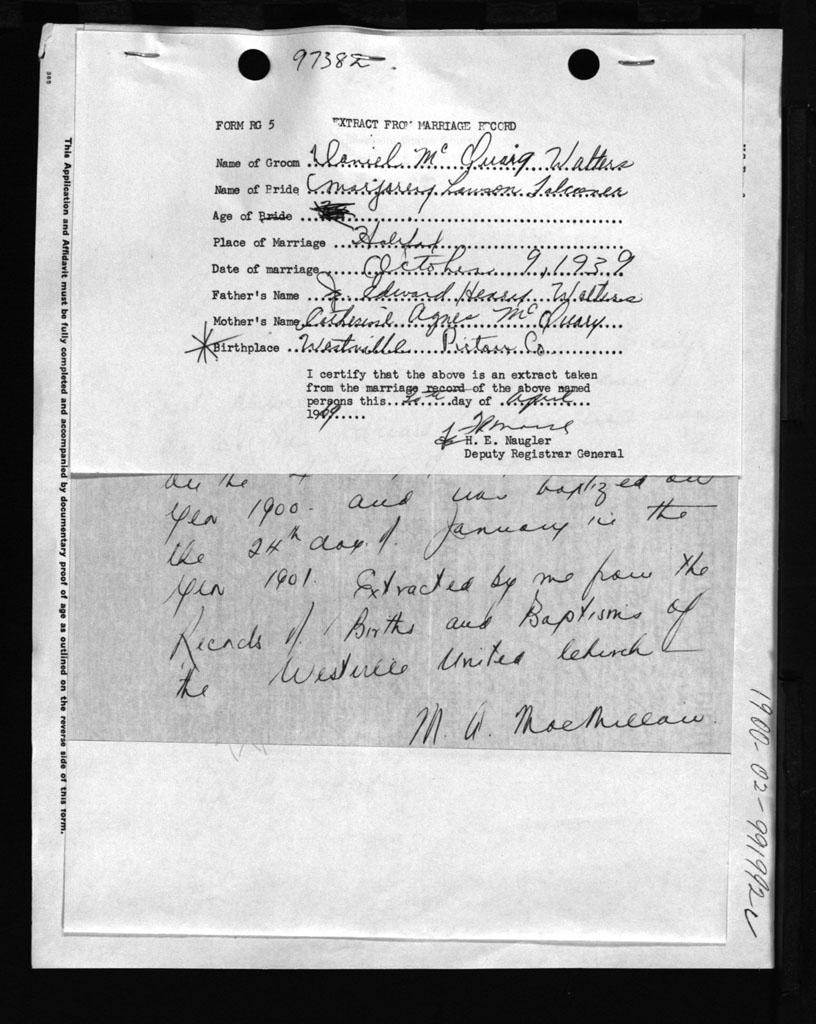 9738
FORM RG 5 EXTRACT FROM MARRIAGE RECORD
Name of Groom Daniel Mc Quaig Walters
Name of Bride Marjorey Lawson Falconer
Age of Bride
Place of Marriage Halifax
Date of marriage October 9, 1939
Father's Name Edward Henry Walters
Mother's Name Catherine Agnes Mc Quary
Birthplace Westville Pictou Co.
I certify that the above is an extract taken
from the marriage record of the above named
persons this day of April
19
H. E. Naugler
Deputy Registrar General
on the
year 1900. and was baptized on
the 24th day of January in the
year 1901. Extracted by me from the
Records of Births and Baptisms of
the Westville United Church
M. A. MacMillan.
This Application and Affidavit must be fully completed and accompanied by documentary proof of age as outlined on the reverse side of this form.
1900-02-991992